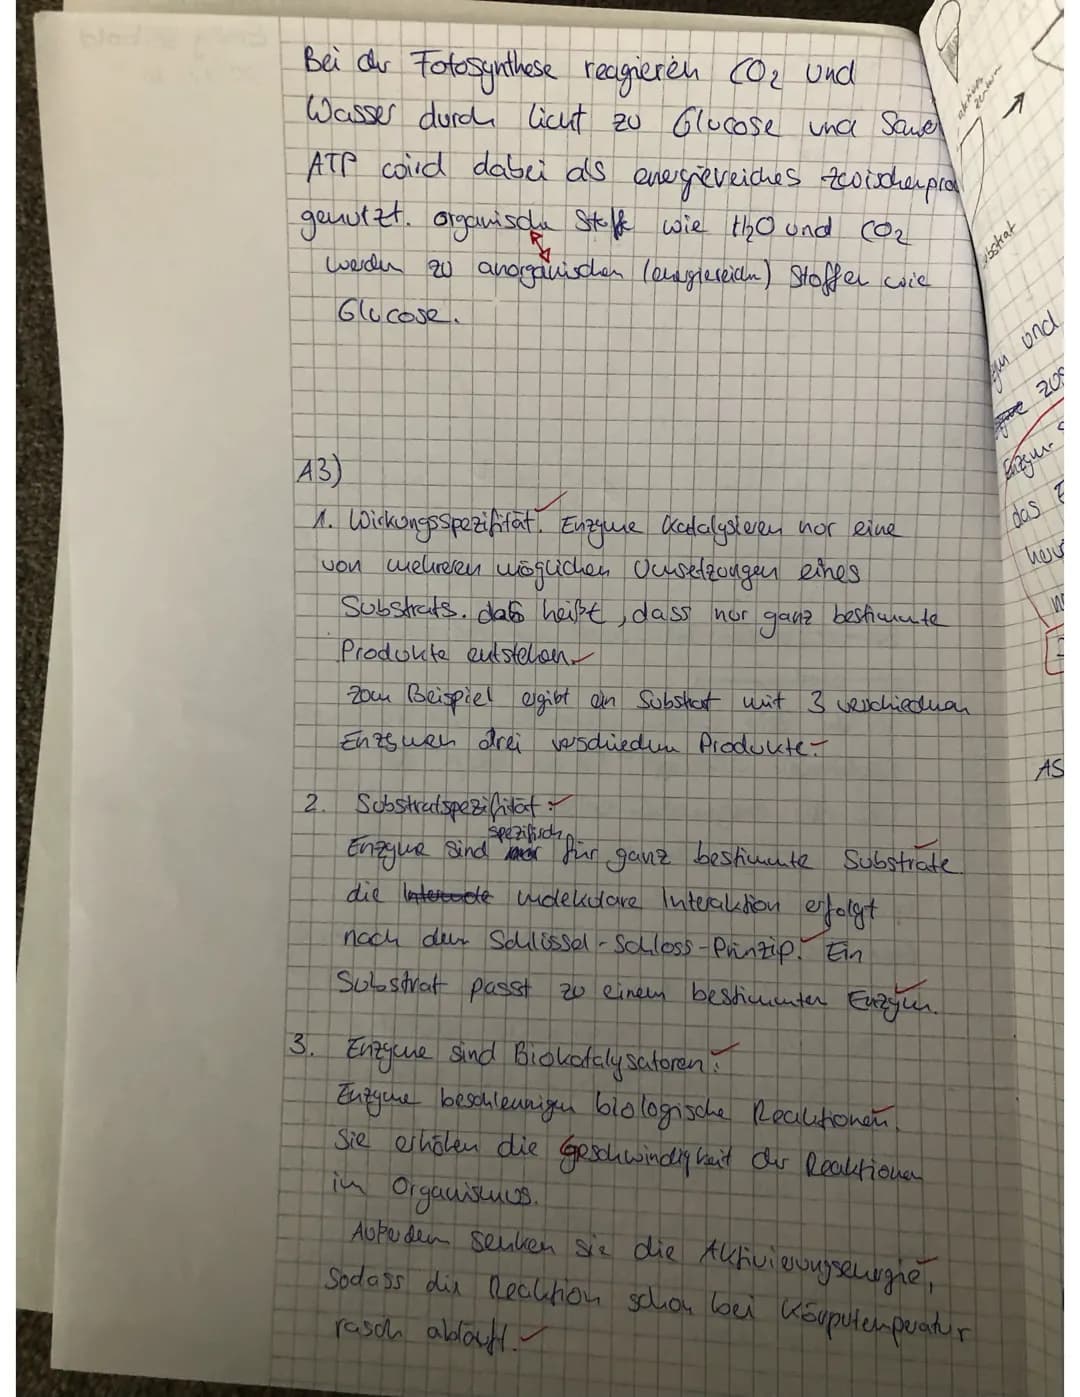 Bei der Fotosynthese reagieren CO₂ und
Wasser durch licht zu Glucose und Sauer
ATP wird dabei als energiereiches zwischenprod
genutzt. organische Stoffe wie H₂O und CO₂
werden zu anorganischen (energiereichen) Stoffen wie
Glucose.
A3)
1. Wirkungsspezifität. Enzyme katalysieren nur eine
von mehreren möglichen Umsetzungen eines
Substrats. daß heißt, dass nur ganz bestimmte
Produkte entstehen.
zum Beispiel ergibt ein Substrat mit 3 verschiedenen
Enzymen drei verschieden Produkte.
2. Substratspezifität:
spezifisch
Enzyme sind für ganz bestimmte Substrate.
die molekulare Interaktion erfolgt
nach dem Schlüssel-Schloss-Prinzip. Ein
Substrat passt zu einem bestimmten Enzym.
3. Enzyme sind Biokatalysatoren:
Enzyme beschleunigen biologische Reaktionen.
Sie erhöhen die Geschwindigkeit der Reaktionen
im Organismus.
Außedem senken sie die Aktivierungsenergie,
sodass die Reaktion schon bei Körputemperatur
rasch abläuft.
substrat
und
Enzym-
das
AS